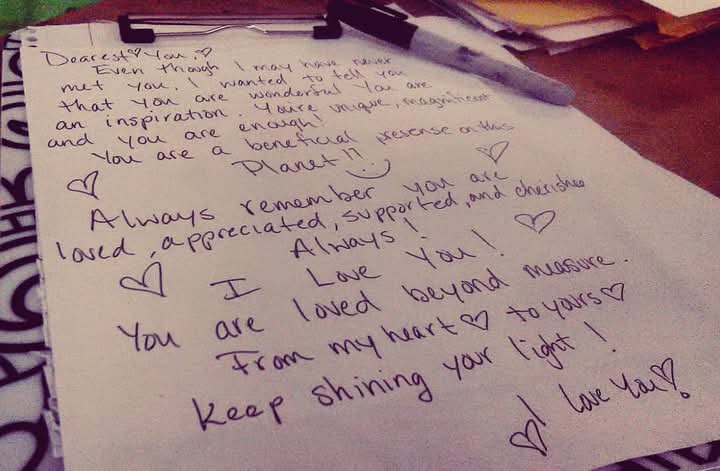 Dearest♡You,♡
Even though I may have never
met you, I wanted to tell you
that you are wonderful you are
an inspiration. You're unique, magnificent
and you are enough!
You are a beneficial presense on this
Planet!!
Always remember you are
loved, appreciated, supported, and cherished
Always!
I Love You!
You are loved beyond measure.
From my heart♡ to yours♡
Keep shining your light!
I love You♡!